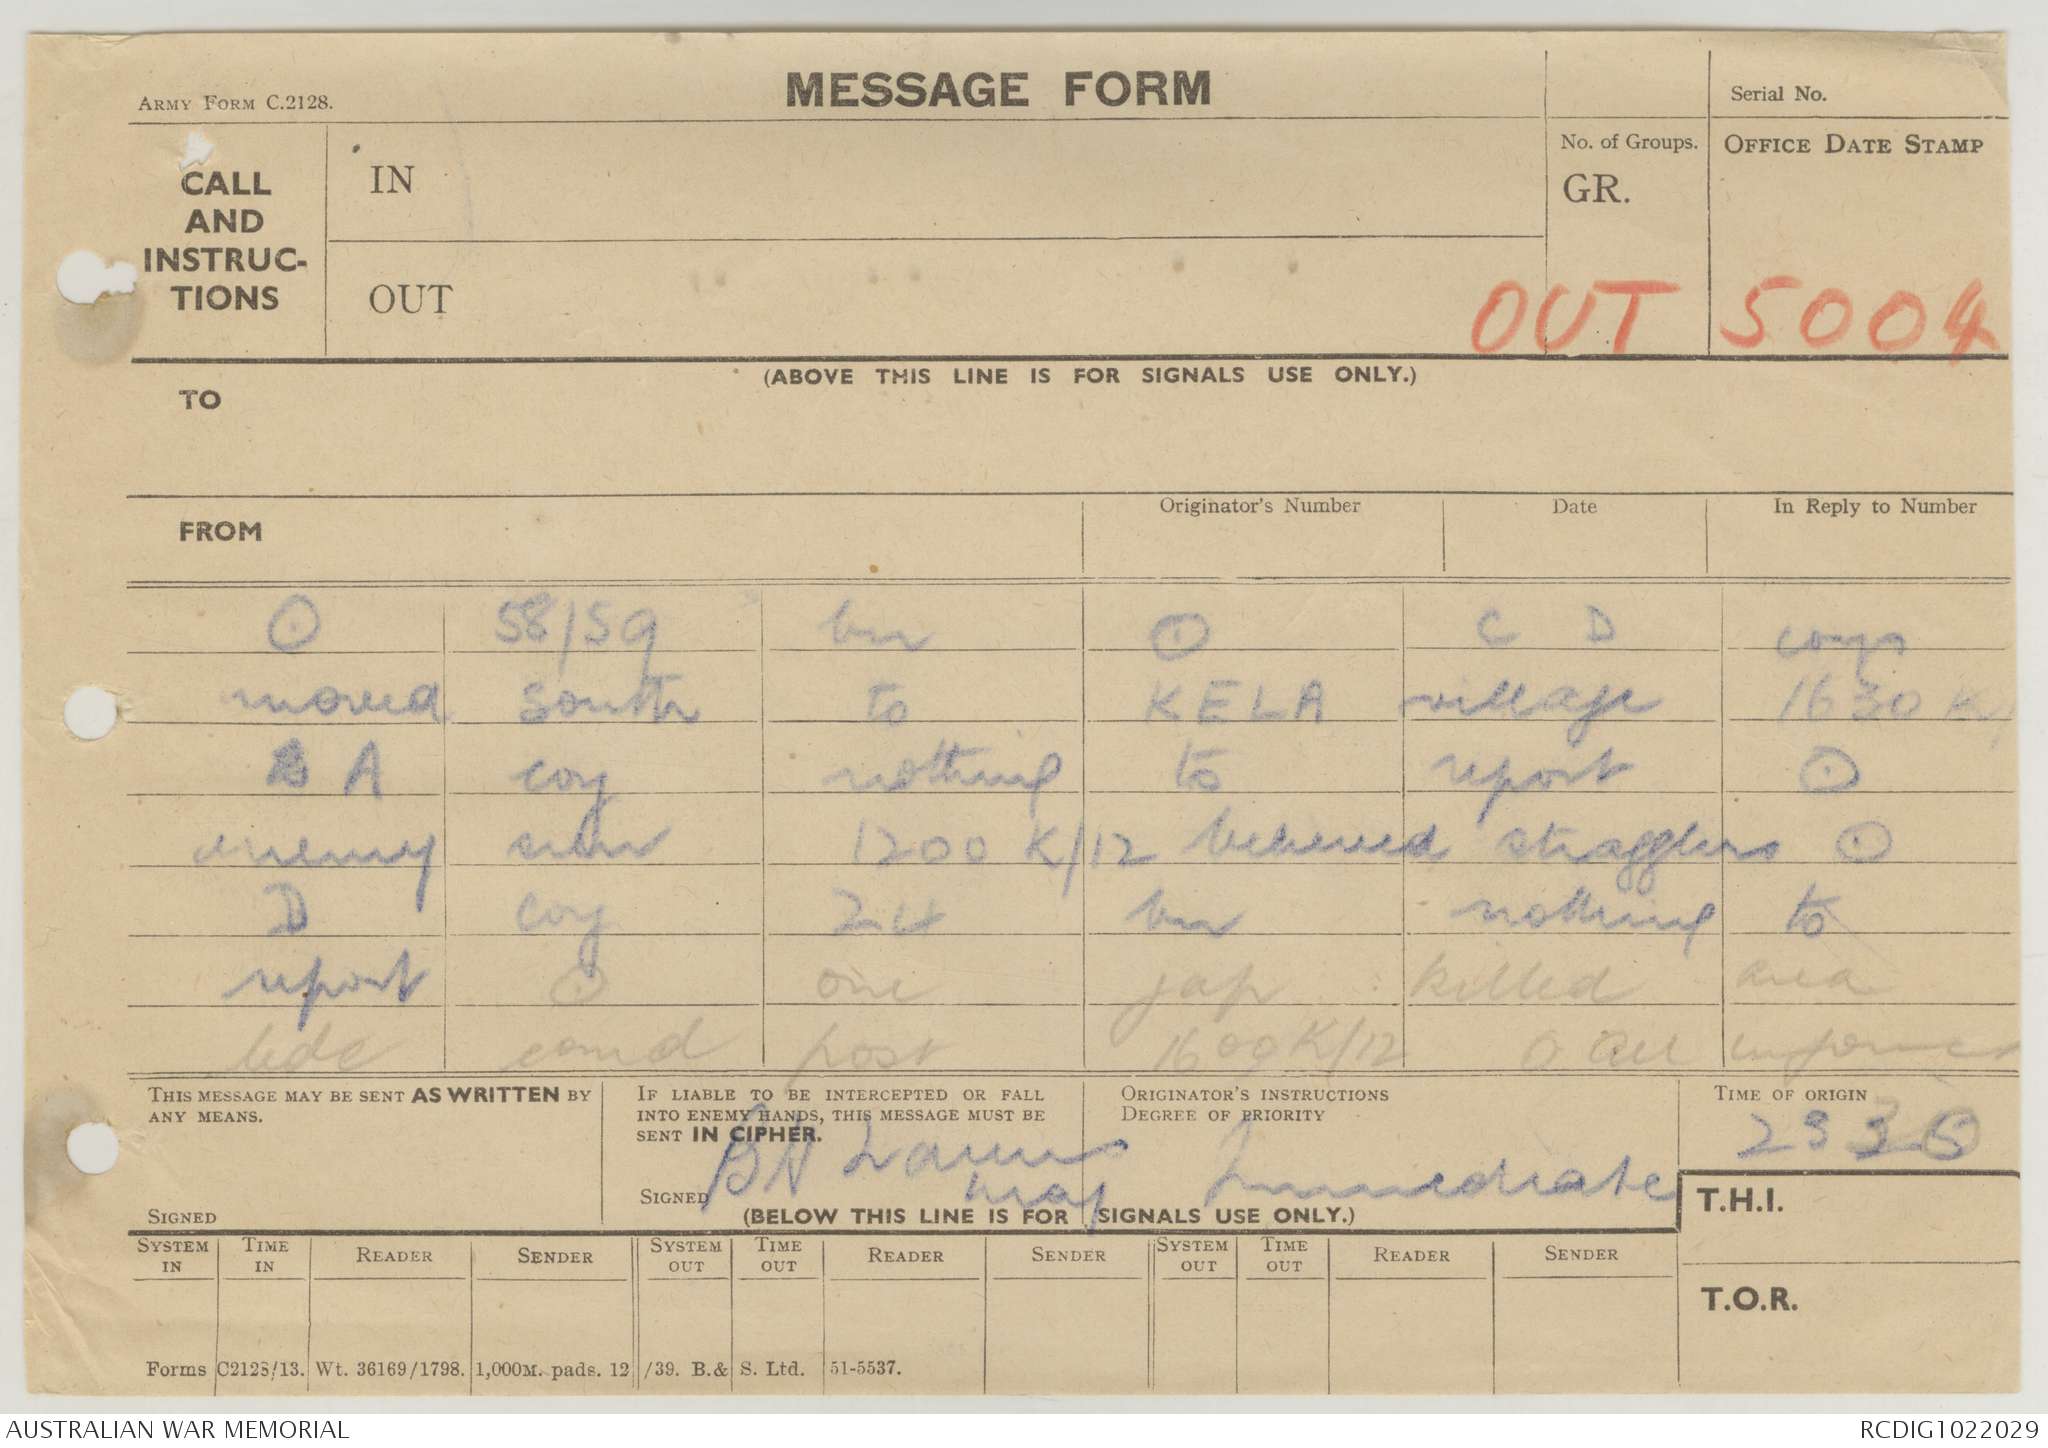 ARMY FORM C.2128.
MESSAGE FORM
Serial No.
CALL AND INSTRUC-TIONS
IN
No. of Groups.
GR.
OFFICE DATE STAMP
OUT
OUT 5004
(ABOVE THIS LINE IS FOR SIGNALS USE ONLY.)
TO
FROM
Originator's Number
Date
In Reply to Number
⊙ 58/59 bn ⊙ C D coys
moved south to KELA village 1630 K/
A coy nothing to report ⊙
enemy seen 1200 K/12 believed stragglers ⊙
D coy 24 bn nothing to
report ⊙ one jap killed area
bde comd post 1600K/12 O all
THIS MESSAGE MAY BE SENT AS WRITTEN BY ANY MEANS.
SIGNED
IF LIABLE TO BE INTERCEPTED OR FALL INTO ENEMY HANDS, THIS MESSAGE MUST BE SENT IN CIPHER.
SIGNED
Maj
ORIGINATOR'S INSTRUCTIONS
DEGREE OF PRIORITY
Immediate
TIME OF ORIGIN
(BELOW THIS LINE IS FOR SIGNALS USE ONLY.)
T.H.I.
SYSTEM IN TIME IN READER SENDER SYSTEM OUT TIME OUT READER SENDER SYSTEM OUT TIME OUT READER SENDER
T.O.R.
Forms C2128/13. Wt. 36169/1798. 1,000M. pads. 12/39. B.& S. Ltd. 51-5537.
AUSTRALIAN WAR MEMORIAL
RCDIG1022029